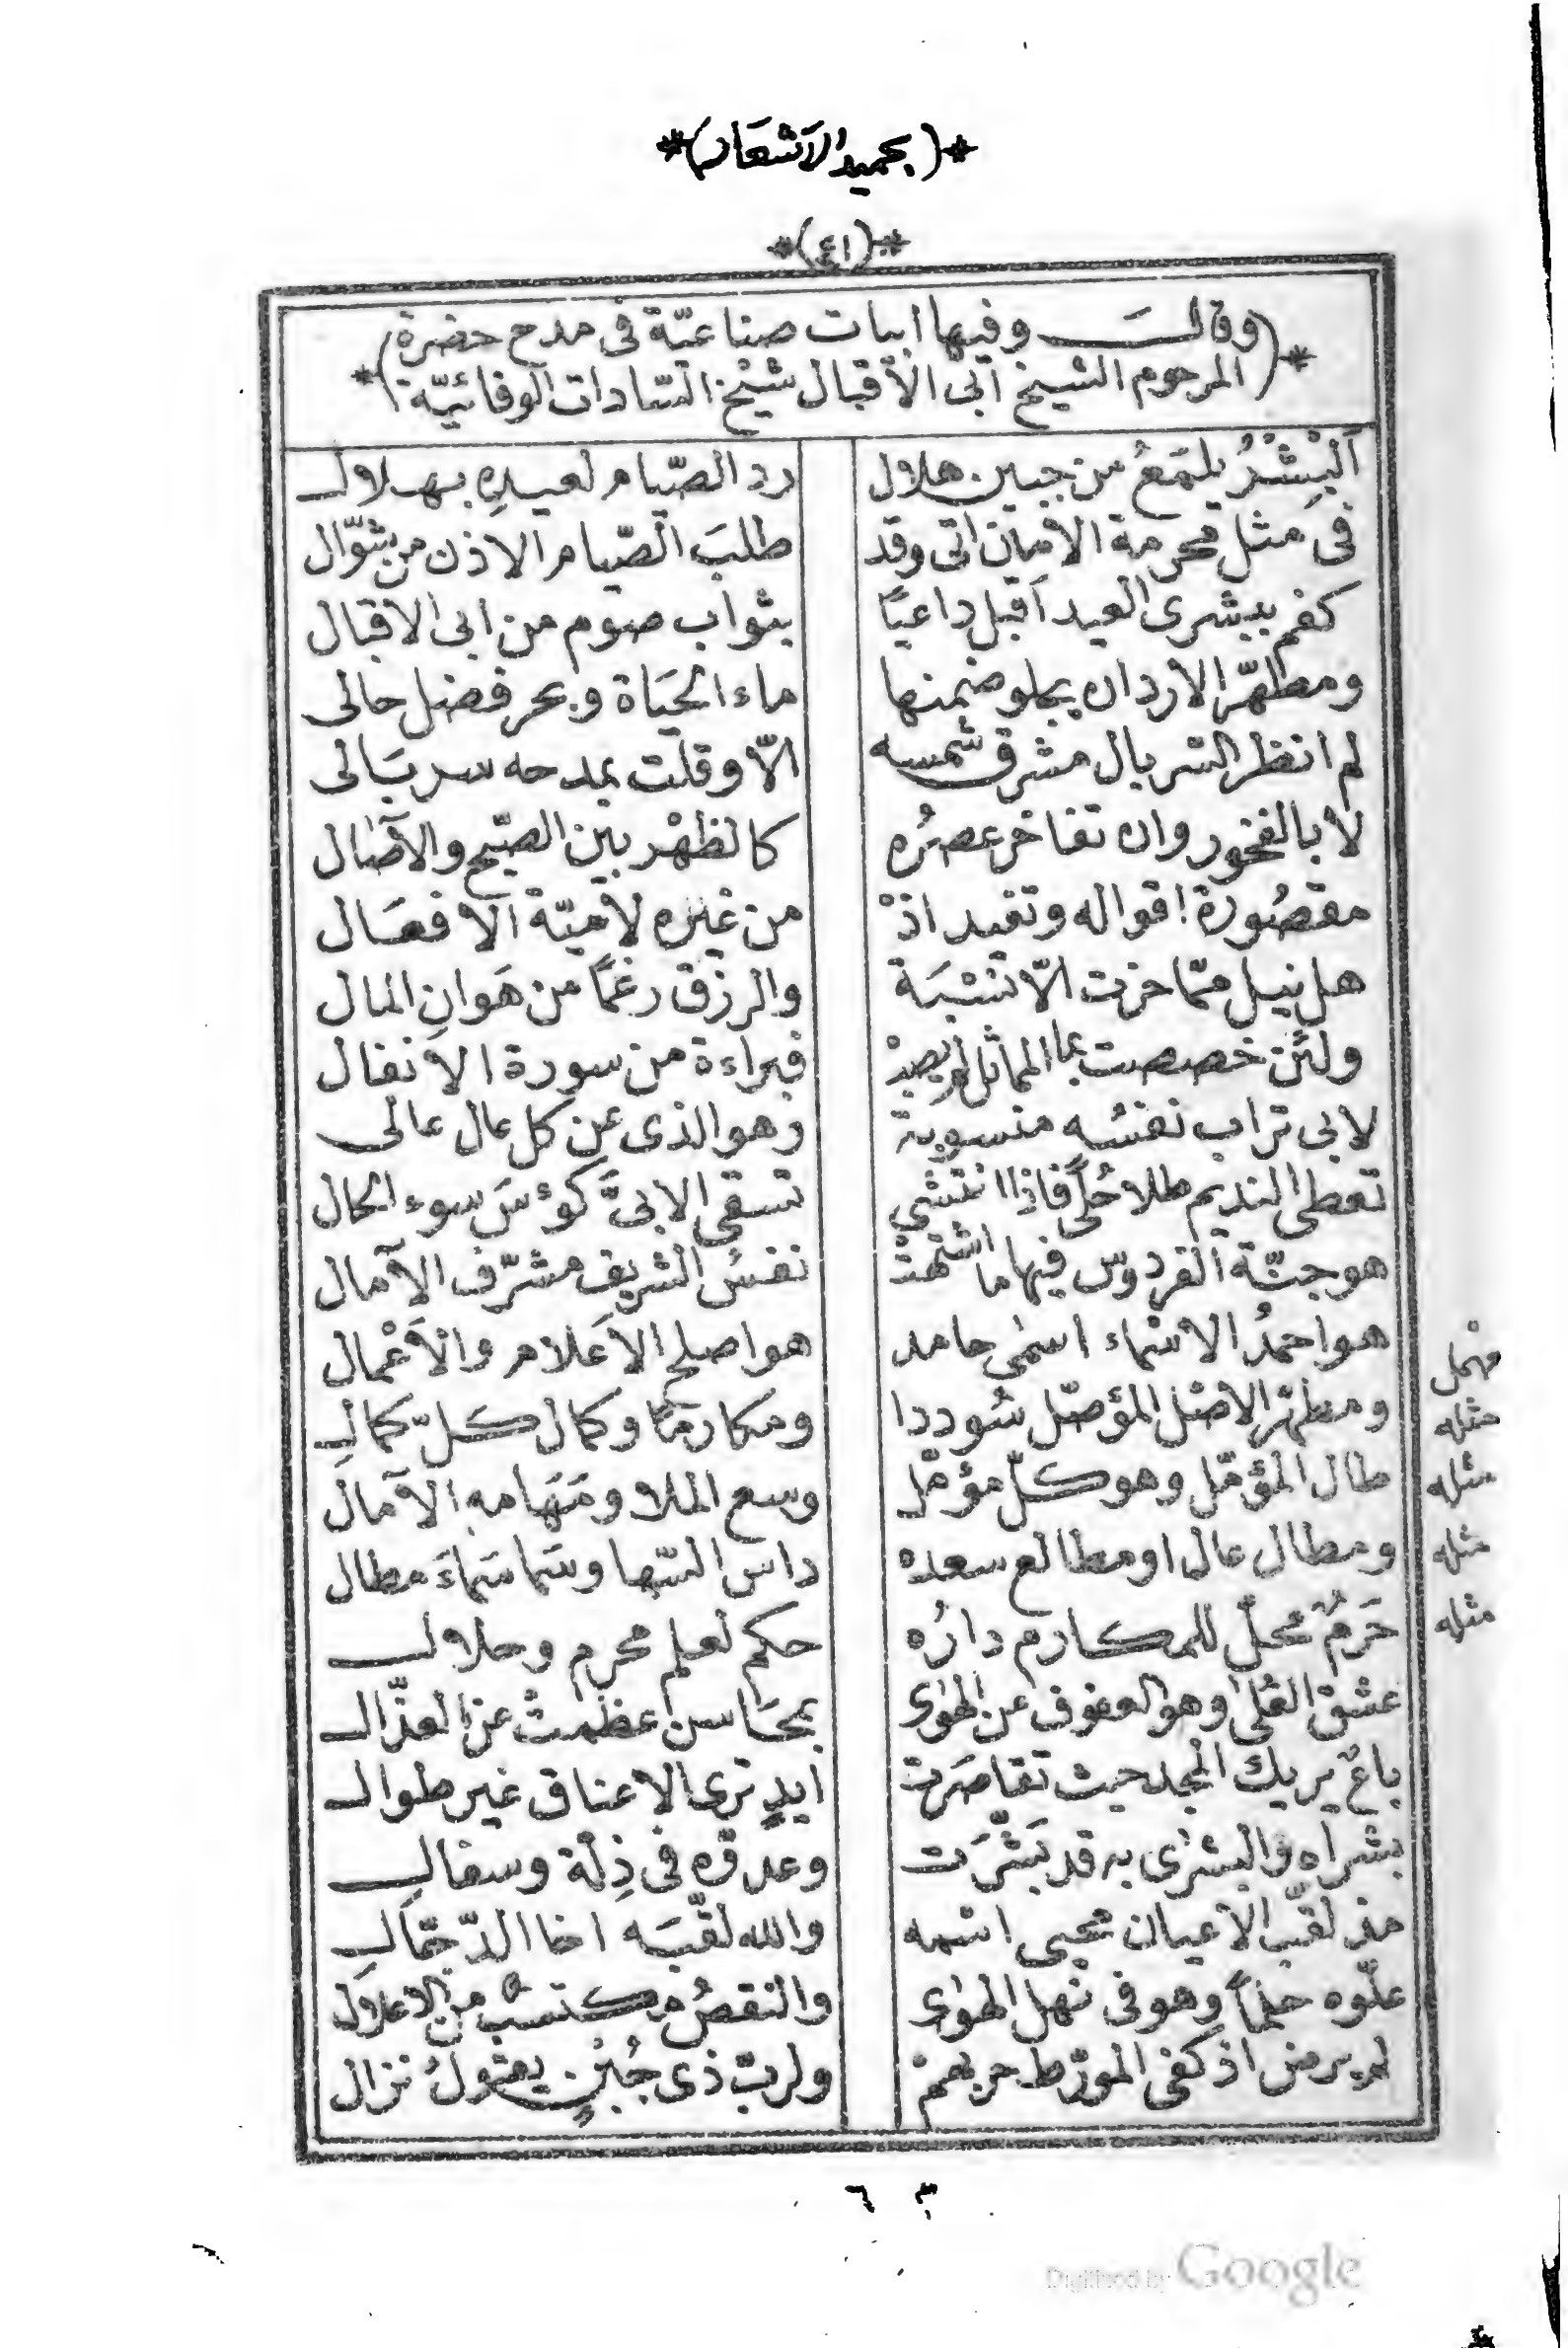 *(بحميد الاشعار)*
*(٤١)*
*(وقال وفيها ابيات صناعيّة فى مدح حضرة
المرحوم الشيخ ابى الاقبال شيخ السّادات الوفائيّة)*
اَلبِشْرُ يلمَعُ من جبين هلال
ردّ الصّيام لعيدِهِ بهلال
فى مثل مخرمة الامان اتى وقد
طلبَ الصّيام الاذن من شوّال
كفم ببشرى العيد اَقبل داعيًا
بثواب صوم من ابى الاقبال
ومطهّر الاردان يجلو ضمنها
ماء الحيَاة وبحر فضل حالى
لم انظر السّربال مشرق شمسه
الّا وقلت بمدحه سربَالى
لا بالفخور وان تفاخر عصرُه
كالظهْر بين الصّبح والآصَال
مقصُورة اقواله وتفيد اذْ
من غيره لاميّة الافعَال
هل نيل ممّا حزت الّا نسْبَة
والرزق رغمًا من هَوان المال
ولئن خصصت بما المماثل لم يصبْ
فبراءة من سورة الانفال
لابى تراب نفسُه منسوبة
وهو الذى عن كل عال عالى
تعطى النديم طلا حُلًى فاذا انتشى
تسقى الابىَّ كؤسَ سوء الحال
هو جنّة الفردوس فيها ما اشتهتْ
نفسُ الشريف مشرّف الآمال
هو احمدُ الاسْماء اسمٰى حامد
هو اصلح الاَعلام والاَعْمال
ومطهّر الاصْل المؤصّل سُوددا
ومكارمًا وكمال كلّ كمال
طال المؤمّل وهو كلّ مؤمّل
وسع الملا ومَهَامه الآمال
ومطال عال او مطالع سعده
داس السّها وسَما سَماءَ مطال
حَرمٌ محلّ للمكارم دارُه
حكم لعلم محرم وحلال
عشق العُلىٰ وهو العفوف عن الهوٰى
بمحَاسن عظمتْ عن العذّال
باعٌ يريك المجد حيث تقاصَرت
ايدٍ ترى الاعناق غير طوال
بشراه والبشرٰى به قد بَشَّرَت
وعدوّه فى ذِلّة وسفال
مذ لقّب الاعيان محيى اسْمه
والله لقّبَه اخا الدّجّال
علّوه حلماً وهو فى نهل الهوٰى
والنقصُ مكتسبٌ من الاعلال
لم يرض اذ كفى المورّط حربهمْ
ولربّ ذى جُبُنٍ يقول نزال
مهمل
مثله
مثله
مثله
مثله
٦
م
Digitized by Google